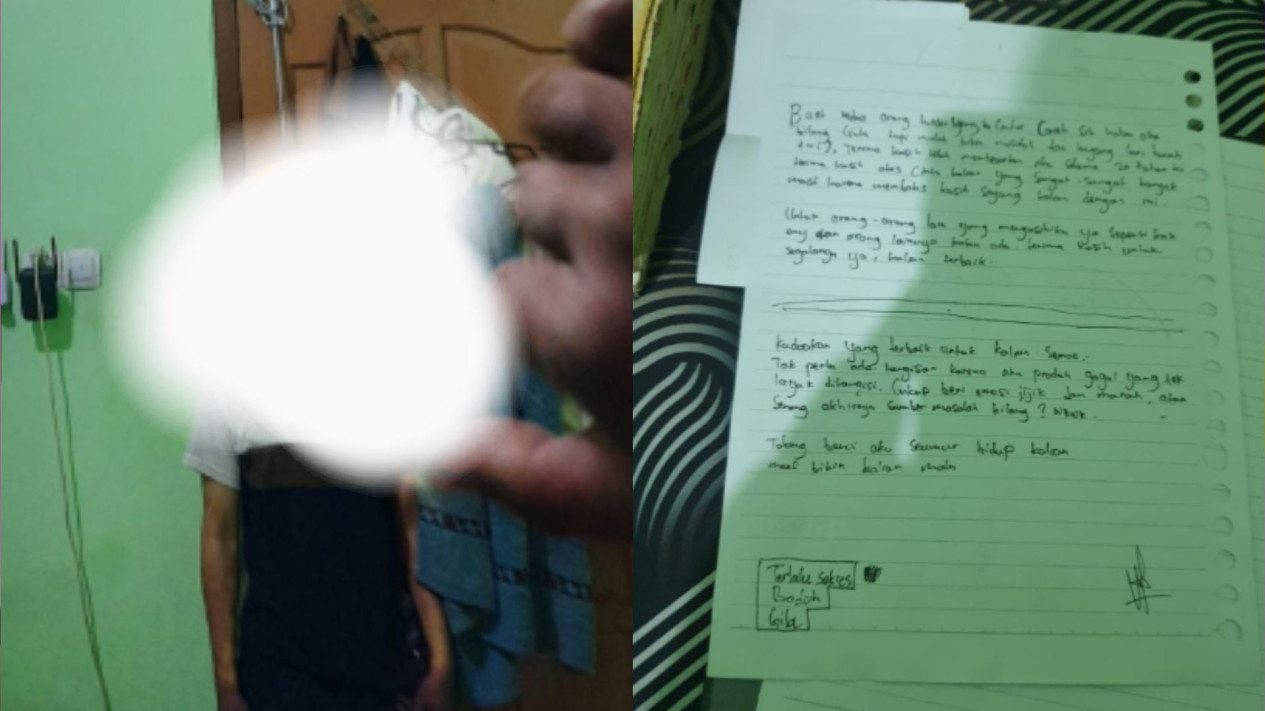 Buat kedua orang
bilang cinta tapi malah
Terima kasih telah membesarkan aku selama 20 tahun ini
terima kasih atas cinta kalian yang sangat-sangat banyak
maaf karena membalas kasih sayang kalian dengan ini.
Untuk orang-orang lain yang mengasihiku ya seperti
orang lainnya kalau ada. terima kasih untuk
segalanya ya, kalian terbaik.
kudoakan yang terbaik untuk kalian semua.
Tak perlu ada tangisan karena aku produk gagal yang tak
layak ditangisi. Cukup beri emosi jijik dan marah, atau
senang akhirnya sumber masalah hilang?
Tolong benci aku seumur hidup kalian
maaf bikin kalian malu
Terlalu sukses
Bodoh
Gila